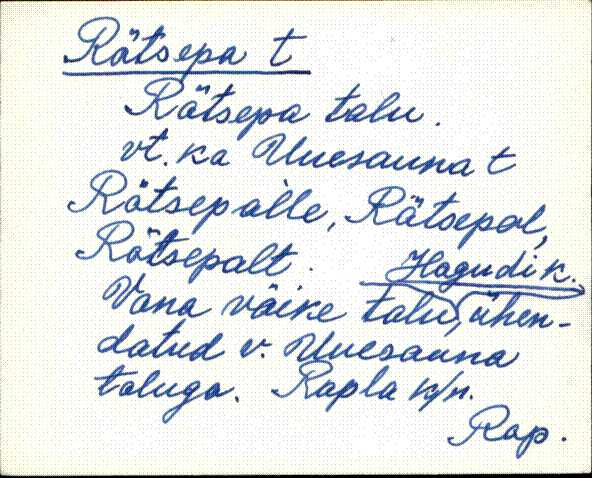 Rätsepa t
Rätsepa talu.
vt. ka Uuesauna t
Rätsepàlle, Rätsepal,
Rätsepalt. Hagudi k.
Vana väike talu, ühen-
datud v. Uuesauna
taluga. Rapla k/n.
Rap.